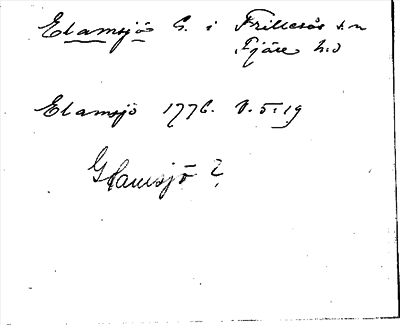 Elamsjö G. i Frillesås s:n
Fjäre h:d
Elamsjö 1776. V. 5:19
Glamsjö ?